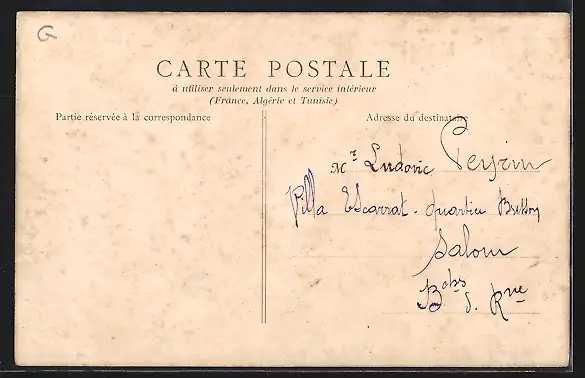 G
CARTE POSTALE
à utiliser seulement dans le service intérieur
(France, Algérie et Tunisie)
Partie réservée à la correspondance
Adresse du destinataire
Mr Ludovic Peyrin
Villa Escarrat - quartier
Salon
Bches d. Rne